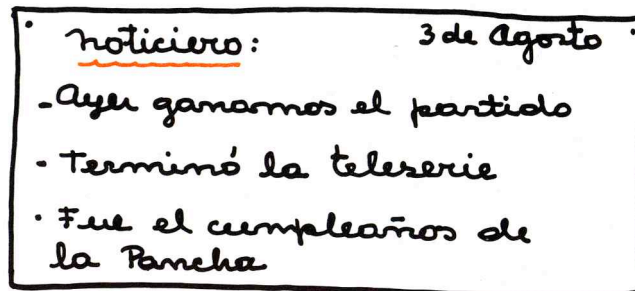 Noticiero: 3 de Agosto
- Ayer ganamos el partido
- Terminó la teleserie
· Fue el cumpleaños de
la Pancha